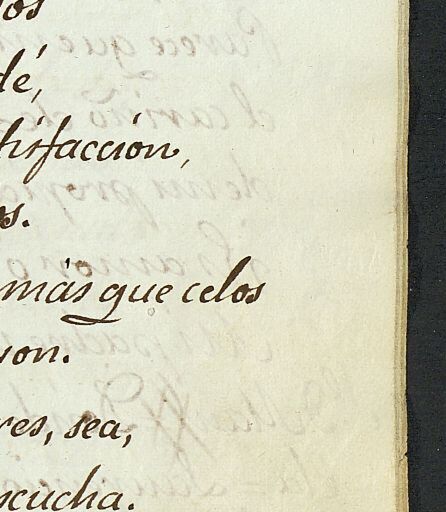 dé,
tisfacción,
os.
más que celos
son.
res, sea,
scucha.